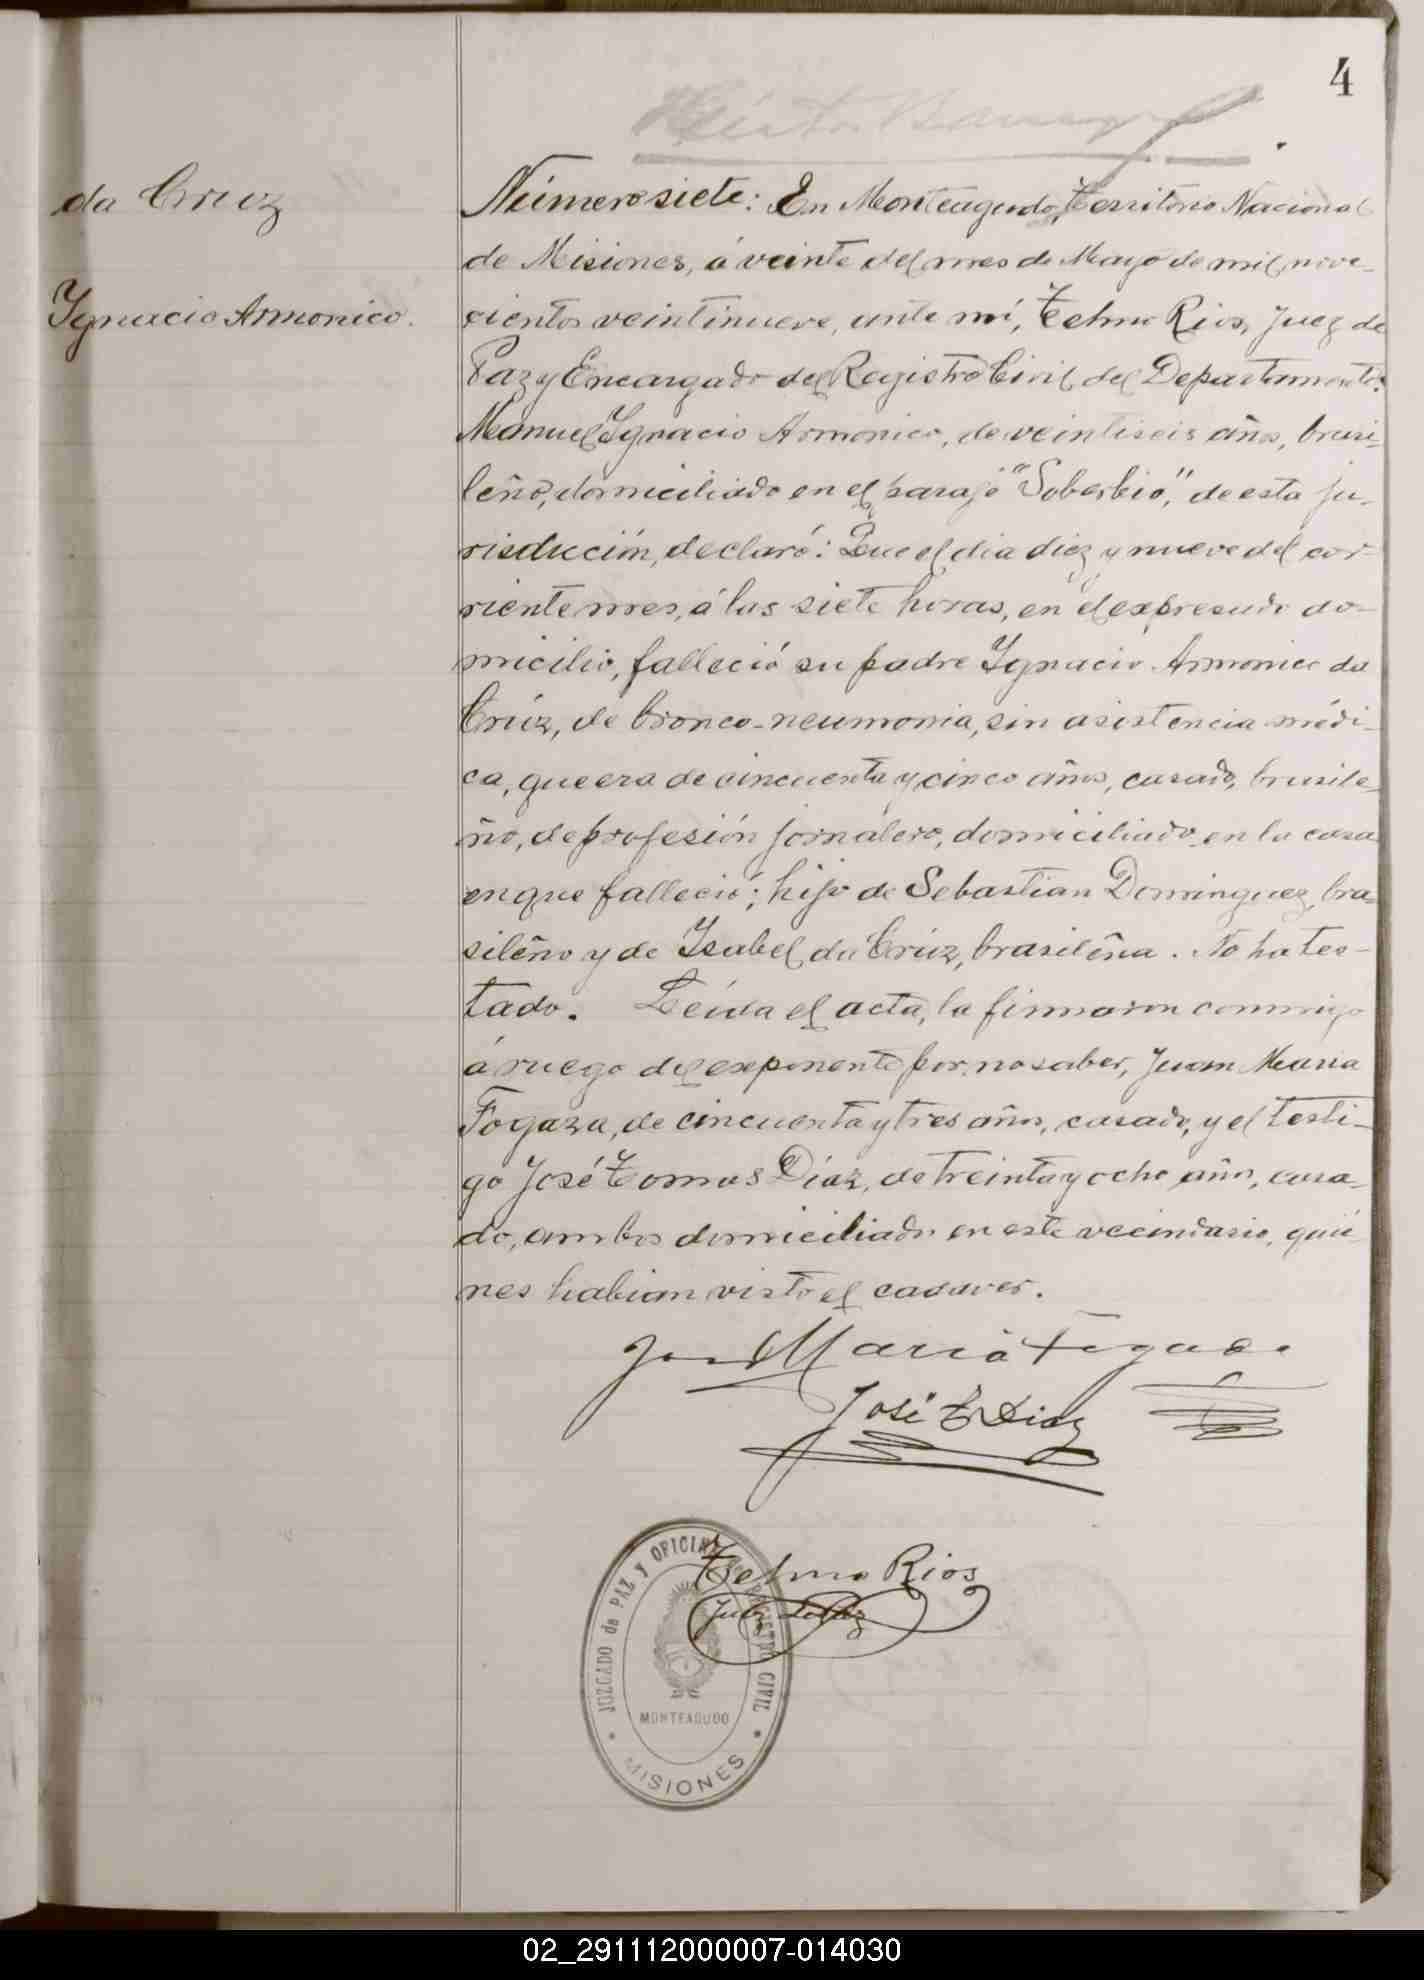 4
da Cruz
Ignacio Armonico.
Número siete: En Monteagudo, Territorio Nacional
de Misiones, á veinte del mes de Mayo de mil nove-
cientos veintinueve, ante mí, Telmo Rios, Juez de
Paz y Encargado del Registro Civil del Departamento:
Manuel Ignacio Armonico, de veintiseis años, brasi-
leño, domiciliado en el paraje "Soberbio", de esta ju-
risdición, declaró: Que el dia diez y nueve del cor-
riente mes, á las siete horas, en el expresado do-
micilio, falleció su padre Ignacio Armonico da
Crúz, de bronco-neumonia, sin asistencia médi-
ca, que era de cincuenta y cinco años, casado, brasile-
ño, de profesión jornalero, domiciliado en la casa
en que falleció; hijo de Sebastian Dominguez, bra-
sileño y de Isabel da Crúz, brasileña. No ha tes-
tado. Leída el acta, la firmaron conmigo
á ruego del exponente por no saber, Juan Maria
Fogaza, de cincuenta y tres años, casado, y el testi-
go José Tomas Díaz, de treinta y ocho años, casa-
do, ambos domiciliados en este vecindario, quié-
nes habian visto el cadaver.
José T Diaz
Telmo Rios
JUZGADO de PAZ y OFICINA del REGISTRO CIVIL
MONTEAGUDO
MISIONES
02_291112000007-014030